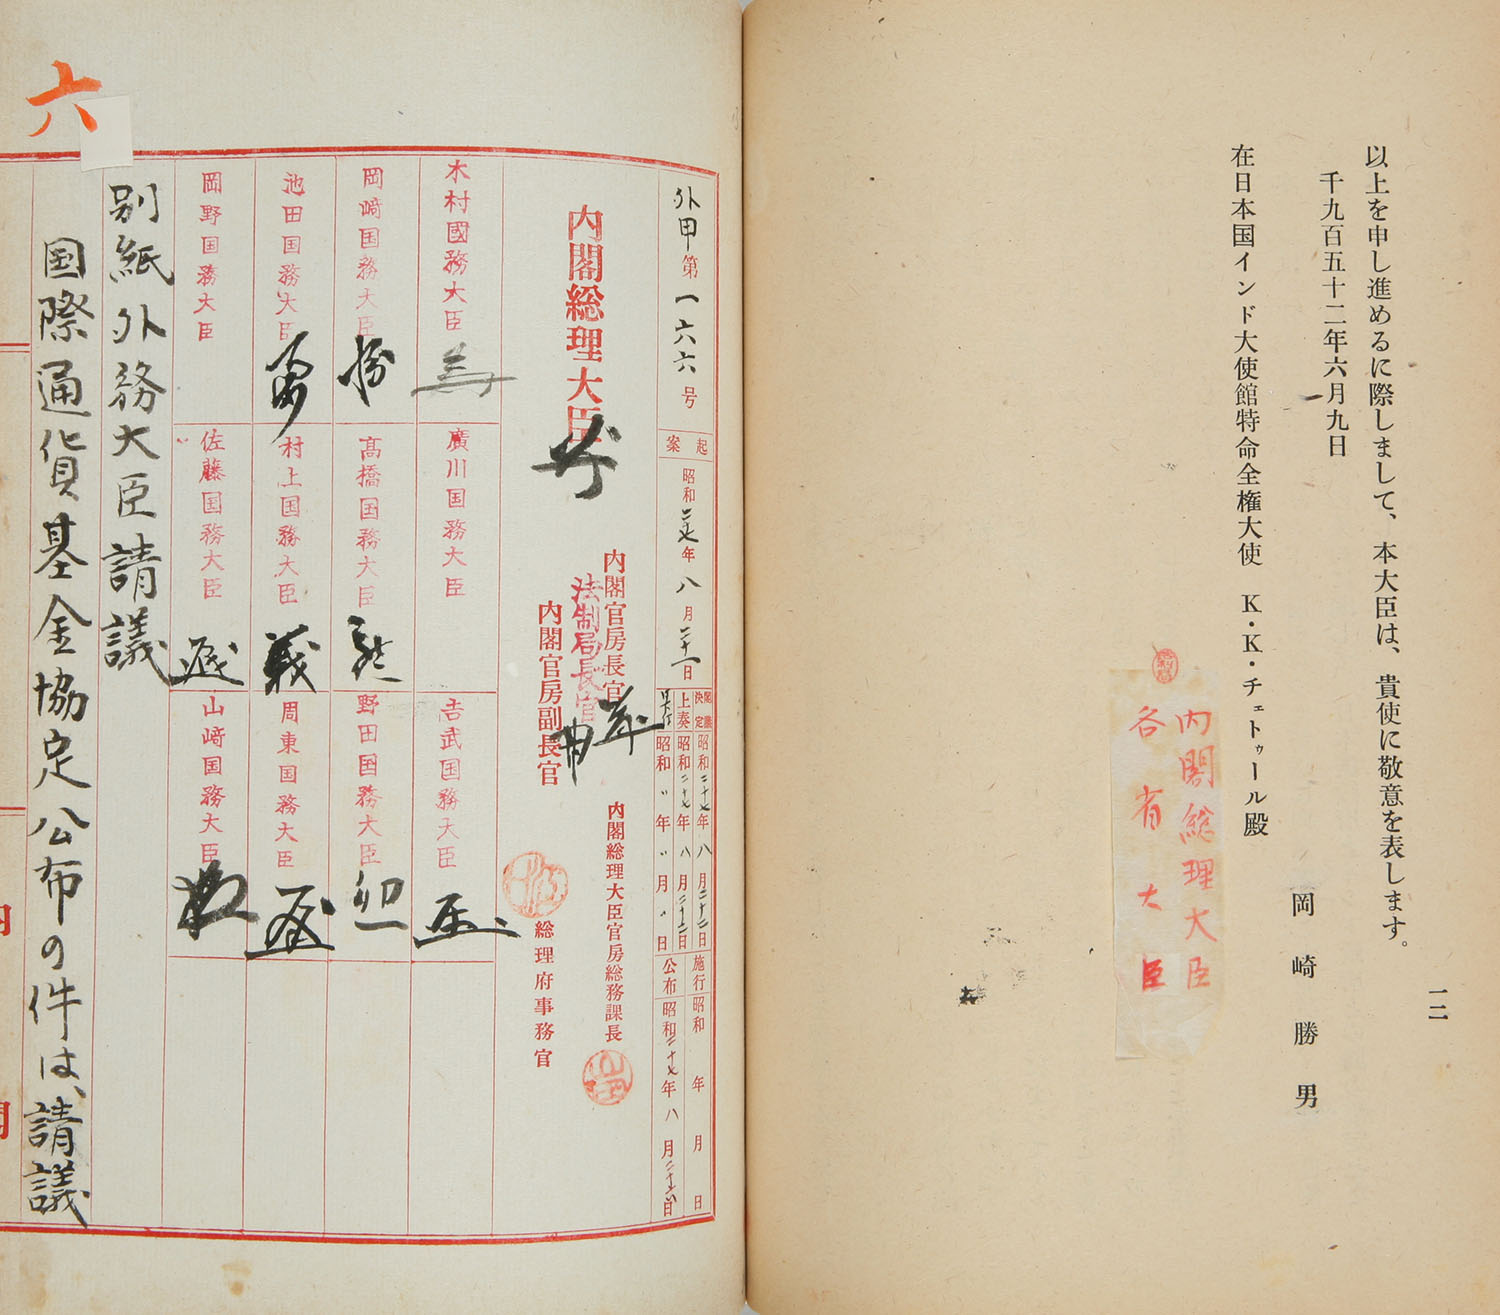 以上を申し進めるに際しまして、本大臣は、貴使に敬意を表します。
千九百五十二年六月九日
岡崎勝男
在日本国インド大使館特命全権大使 K・K・チェトゥール殿
一二
内閣総理大臣
各省大臣
六
外甲第一六六号
起案 昭和 年八月二十一日
閣議決定 昭和二十七年八月二十二日
上奏 昭和二十七年八月二十二日
昭和〃年〃月〃日
施行 昭和 年 月 日
公布 昭和二十七年八月 日
内閣総理大臣
内閣官房長官
法制局長官
内閣官房副長官
内閣総理大臣官房総務課長
総理府事務官
木村國務大臣
廣川国務大臣
吉武国務大臣
岡崎国務大臣
高橋国務大臣
野田国務大臣
池田国務大臣
村上国務大臣
周東国務大臣
岡野国務大臣
佐藤国務大臣
山崎国務大臣
別紙外務大臣請議
国際通貨基金協定公布の件は、請議